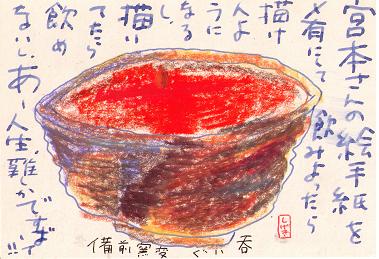 宮本さんの絵手紙を
肴にして飲みよったら
描け
人よ
うに
なる
し
描い
てたら
飲め
ないし、あー人生、難しかですば!!
備前窯変 ぐい呑